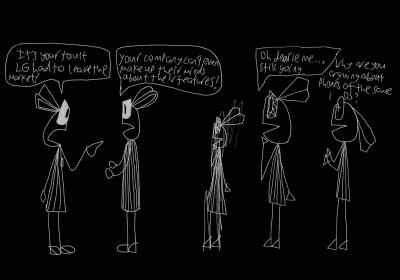 It's your fault
LG had to leave the
market!
Your company can't even
make up their minds
about their features!
Oh dearie me...
still going
Why are you
arguing about
phones of the same
OS?